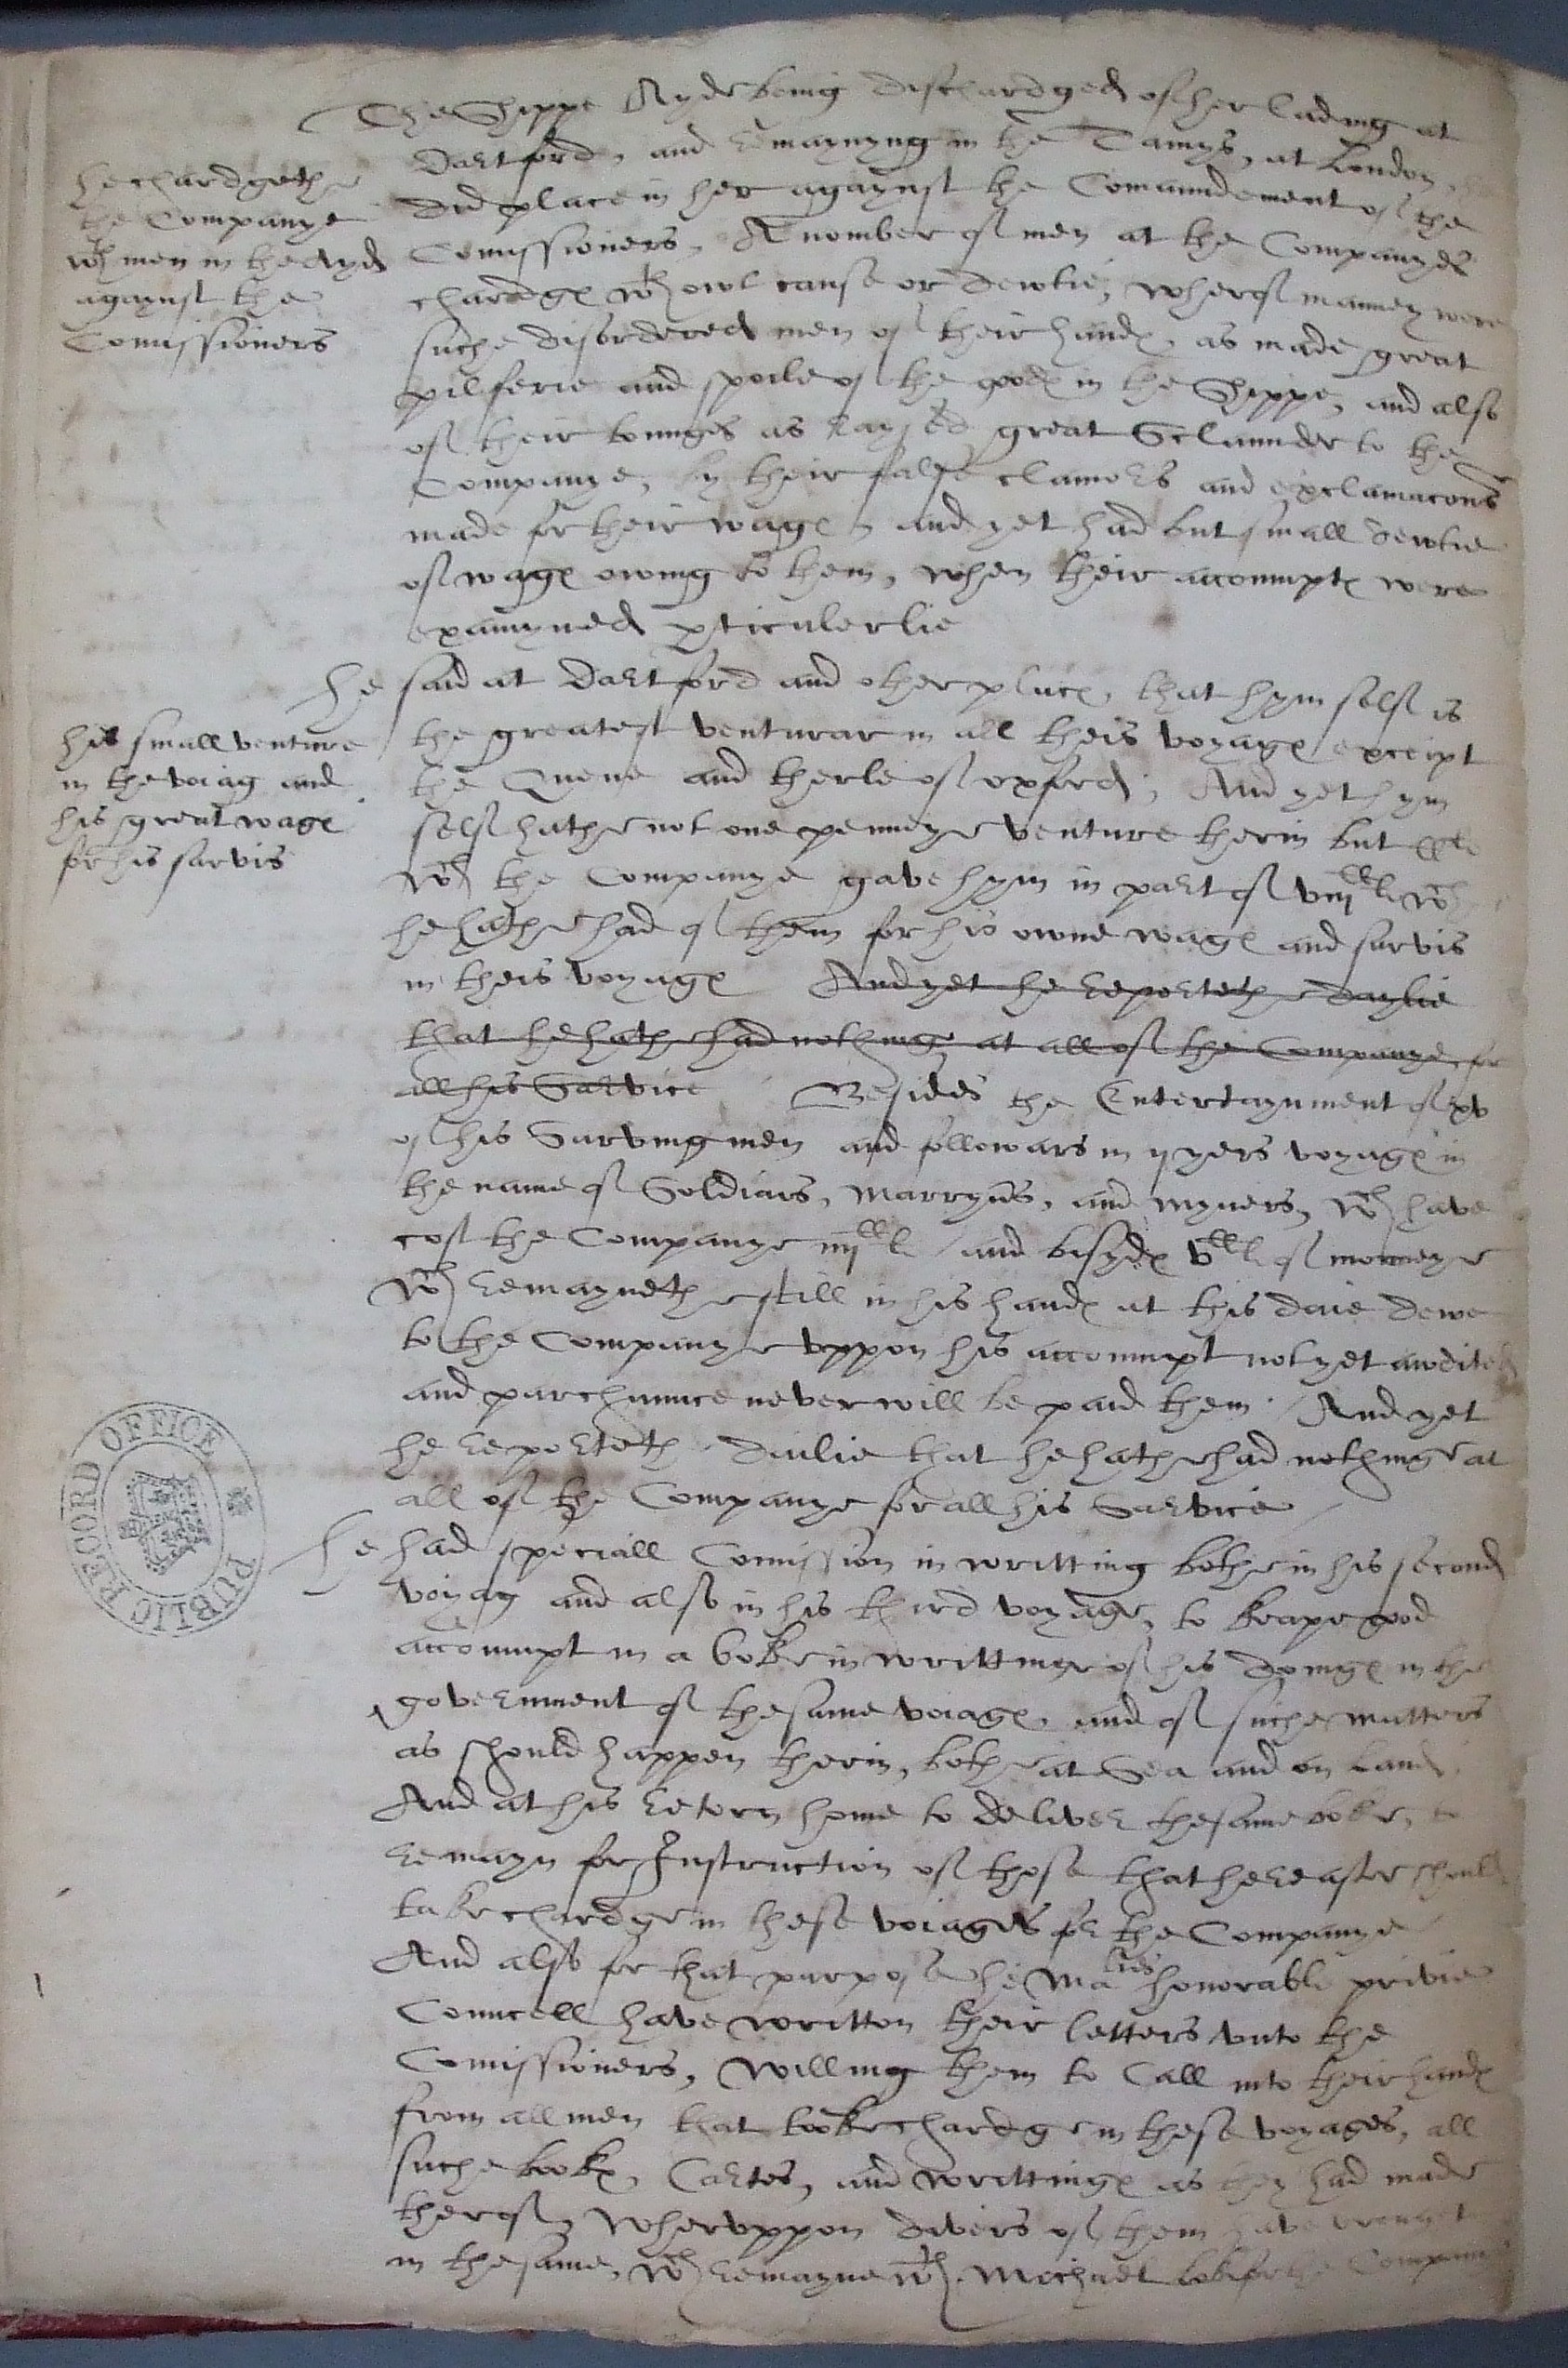 The Shippe Ayde being dischardged of her lading at
Dartford, and remaynyng in the Tamys, at London,
did place in her agaynst the Comaundement of the
Comissioners, A nomber of men at the Companyes
chardge wth owt cause or dewtie, wherof manney were
suche disordered men of their hands, as made great
pilferie and spoile of the goods in the Shippe, and also
of their tounges as raysed great Sclaunder to the
Companye, by their false clamors and exclamacons
made for their wages and yet had but small dewtie
of wages owing to them, when their accoumpts were
examyned pticulerlie
he chardgethe
the Companye
wth men in the Ayd
agaynst the
Comissioners
He said at Dartford and other places, that hym self is
the greatest venturar in all theis voyages exceipt
the Quene and therle of oxford, And yet hym
self hathe not one penneye venture therin but
wch the Companye gave hym in part of viijC li wch
he hathe had of them for his owne wages and sarvis
in theis voyages And yet he reportethe daylie
that he hath had nothing at all of the Companye for
all his Sarvice Besides the Entertaynment of xv
of his Sarving men and followars in ij yers voyages in
the name of Soldiars, Marryns, and Myners, wch have
cost the Companye iiijC li / and besydes vC li of monneye
wch remaynethe still in his hands at this daie dewe
to the Companye uppon his accoumpt not yet awdited
and parchaunce never will be paid them. And yet
he reporteth dailie that he hathe had nothinge at
all of the Companye for all his Sarvice
his small venture
in the voiag and
his great wages
for his sarvis
He had speciall Comission in writting bothe in his second
voyag and also in his third voyage, to keape good
accoumpt in a boke in writtinge of his doings in the
government of the same voiages, and of suche matters
as should happen therin, bothe at Sea and on Land,
And at his retorn home to deliver the same boke, to
remayn for Instruction of those that hereafter should
take chardge in these voiages for the Companye
And also for that purpose the Maties honorable privie
Councell have written their letters unto the
Comissioners, willing them to Call into their hands
from all men that tooke chardge in these voyages, all
suche books, Cartes, and writtings as they had made
therof, wheruppon divers of them have brought
in the same, wch remayne wth Michael Lok for the Companie
PUBLIC RECORD OFFICE